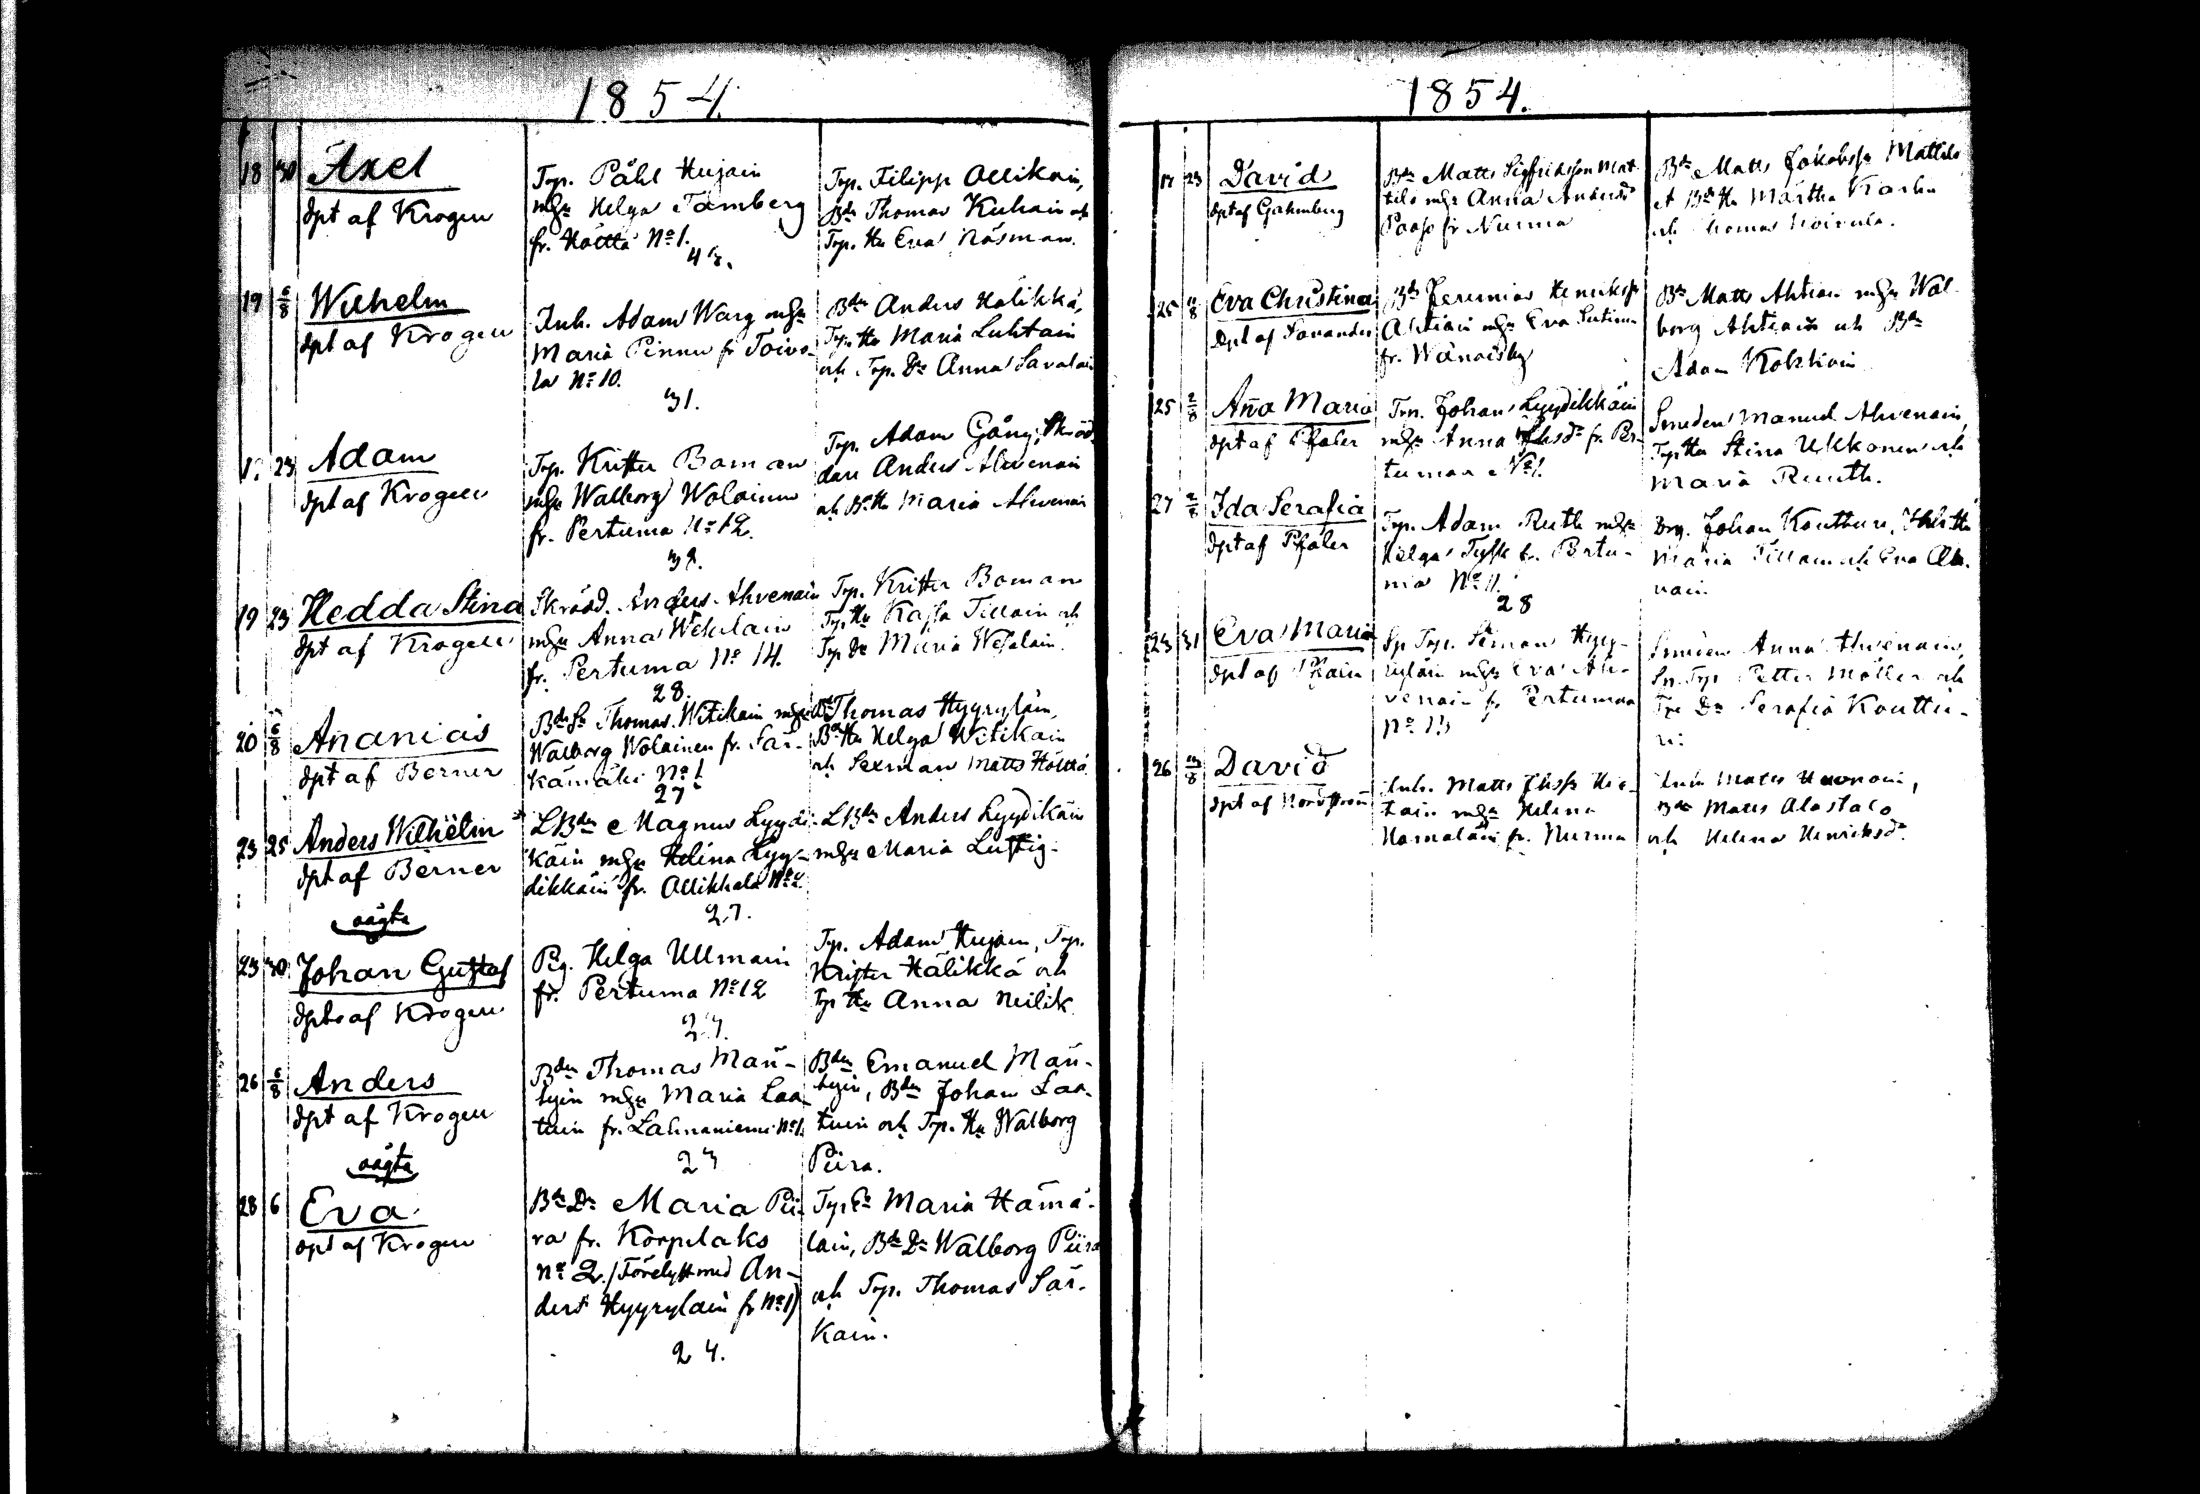 1854.
18 30 Axel
dpt af Krogen
Torp. Påhl Hujain
mhu Helga Tamberg
fr. Höltta No 1.
43.
Torp. Filipp Ollikain,
Bdn Thomas Kuhain och
Torp. Hu Eva Näsman.
19 6/8 Wilhelm
dpt af Krogen
Inh. Adam Warg mhu
Maria Pinnu fr Toivo-
la No 10.
31.
Bdn Anders Hälikkä,
Torp. Hu Maria Luhtain
och Torp. Dr Anna Savalain
23 Adam
dpt af Krogen
Torp. Krister Boman
mhu Walborg Wolainen
fr. Pertuma No 12.
38.
Torp. Adam Gång, Skräd-
dare Anders Ahvenain
och Bd Hu Maria Ahvenain
19 23 Hedda Stina
dpt af Krogen
Skrädd. Anders Ahvenain
mhu Anna Wehalain
fr. Pertuma No 14.
28.
Torp. Krister Boman
Torp Hu Kajsa Tillain och
Torp Dr Maria Wehalain
20 6/8 Ananias
dpt af Berner
Bde Sn Thomas Witikain mhu
Walborg Wolainen fr. Sär-
kämäki No 1
27
Thomas Hyyryläin,
Bd Hu Helga Witikain
och Sexman Matts Hölttä
23 25 Anders Wilhelm
dpt af Berner
LBdn Magnus Lyydi-
käin mhu Helena Lyy-
dikkäin fr. Ollikkala No 2
27.
LBdn Anders Lyydikäin
mhu Maria Lustig.
oägta
23 30 Johan Gustaf
dpt af Krogen
Pig. Helga Ullmain
fr. Pertuma No 12
27.
Torp. Adam Hujain, Torp.
Krister Hälikkä och
Torp Hu Anna Neilik
26 6/8 Anders
dpt af Krogen
Bdn Thomas Män-
tyin mhu Maria Laa-
tuin fr. Lahnaniemi No 1.
23
Bdn Emanuel Män-
tyin, Bdn Johan Laa-
tuin och Torp. Hu Walborg
Piira.
oägta
28 6 Eva
dpt af Krogen
Bde Dr Maria Pii-
ra fr. Korpilaks
No 2. (Förelyst med An-
ders Hyyryläin fr No 1)
24.
Torp Maria Hämä-
läin, Bd Dr Walborg Piira
och Torp. Thomas Sär-
käin.
1854.
17 23 David
dpt af Grahmberg
Bdn Matts Sigfridsson Mat-
tila mhu Anna Andersd
Paaso fr Nurma
Bdn Matts Jakobsson Mattila
et Bd Hu Märtha Karhu
och Thomas Koivula.
25 Eva Christina
dpt af Savander
Bdn Jeremias Henriksson
Ahtiain mhu Eva Sutinen
fr. Wänaisby
Bdn Matts Ahtiain mhu Wal-
borg Ahtiain och Bdn
Adam Kolhkain
25 2/8 Anna Maria
dpt af Pfaler
Johan Lyydikkäin
mhu Anna Johsdr fr. Per-
tumaa No 1.
Smeden Manuel Ahvenain,
Torp Hu Stina Ukkonen och
Maria Ruuth.
27 Ida Serafia
dpt af Pfaler
Torp. Adam Ruth mhu
Helga Tysk fr. Pertu-
ma No 11.
28
Johan Kouthuri,
Maria Tillain och Eva Ah-
vain
23 31 Eva Maria
dpt af
Sp Torp. Simon Hyy-
ryläin mhu Eva Ah-
venain fr. Pertumaa
No 13
Anna Ahvenain,
Sp. Torp Petter Möller och
Torp Dr Serafia Kouttu-
ri.
26 David
dpt af Nordström
Inh. Matts Johsson Hie-
tain mhu Helena
Hamaläin fr. Nurma
Matts
Bdn Matts Alastalo
och Helena Henriksdr